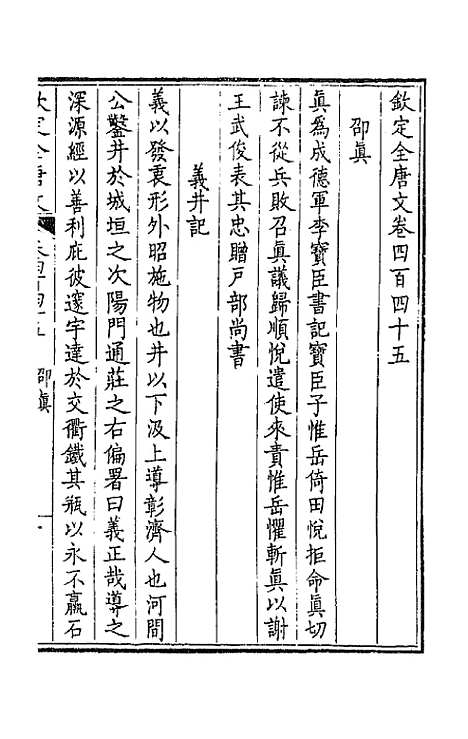 欽定全唐文卷四百四十五
邵眞
眞爲成德軍李寶臣書記寶臣子惟岳倚田悅拒命眞切
諫不從兵敗召眞議歸順悅遣使來責惟岳懼斬眞以謝
王武俊表其忠贈戶部尚書
義井記
義以發衷形外昭施物也井以下汲上導彰濟人也河間
公鑿井於城垣之次陽門通莊之右偏署曰義正哉導之
深源經以善利庇彼邃宇達於交衢鐵其瓶以永不羸石
邵眞